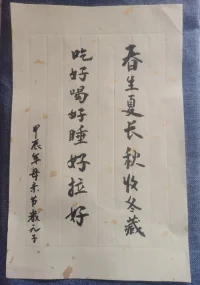 春生夏长秋收冬藏
吃好喝好睡好拉好
甲辰年母亲节叔元子